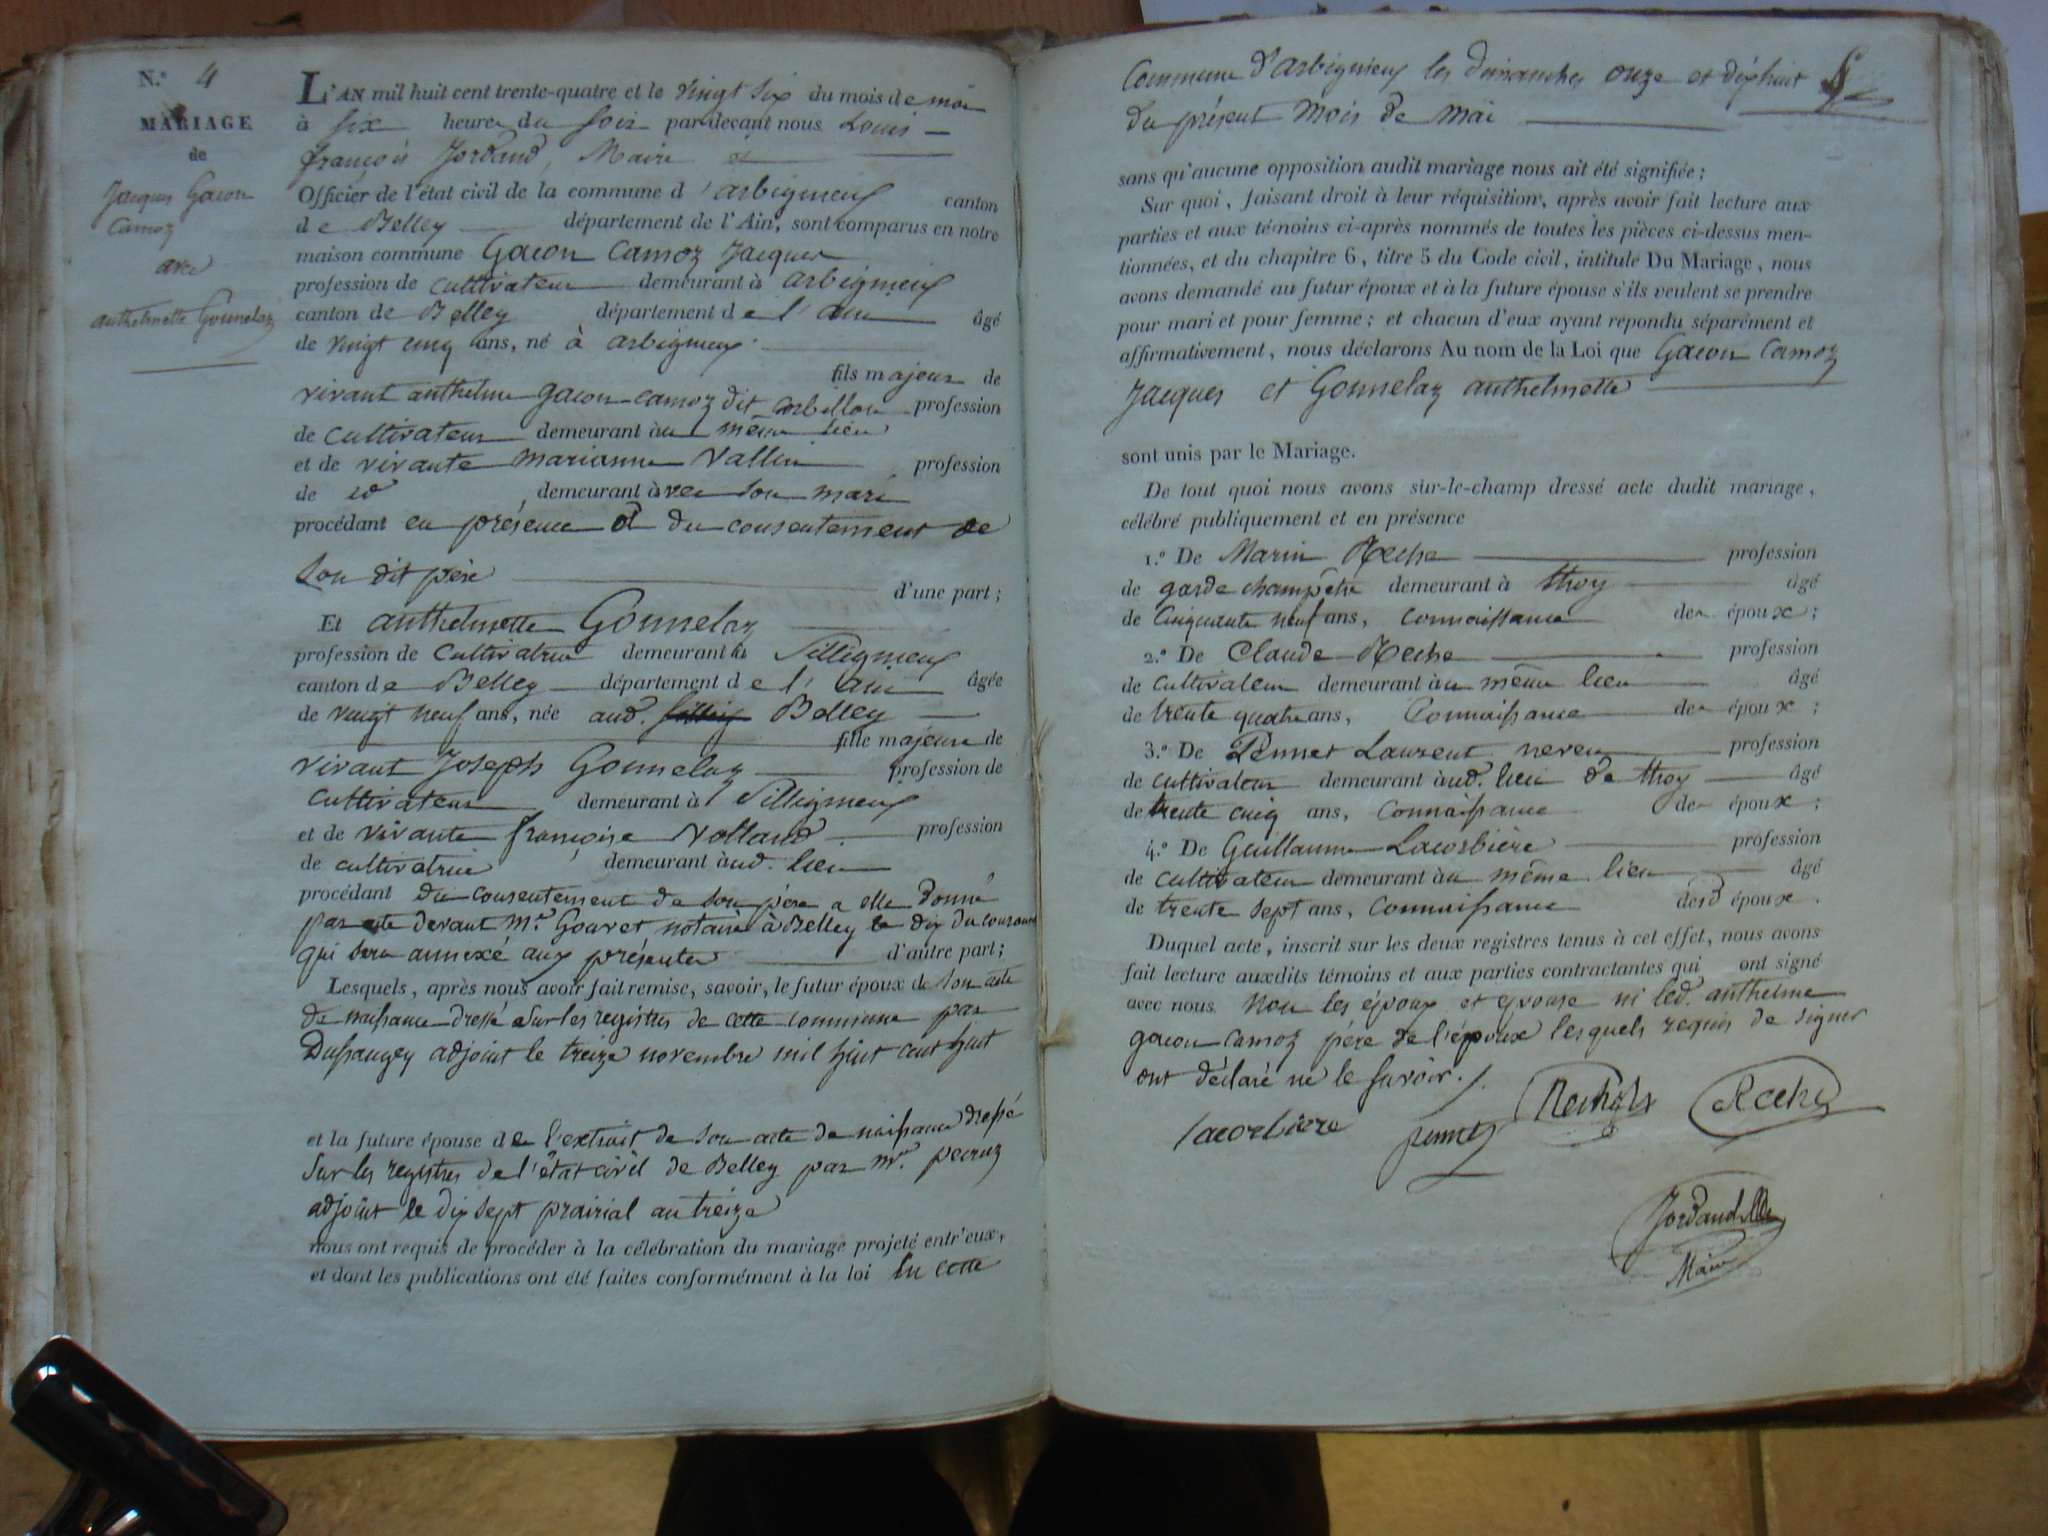 N.° 4
MARIAGE
de
Jacques Gacon
Camoz
avec
anthelmette Gonnelaz
L'AN mil huit cent trente-quatre et le vingt six du mois de mai
à six heures du soir par devant nous Louis
françois Jordand, Maire
Officier de l'état civil de la commune d'arbignieux canton
de Belley département de l'Ain, sont comparus en notre
maison commune Gacon Camoz Jacques
profession de cultivateur demeurant à arbignieux
canton de Belley département de l'ain âgé
de vingt cinq ans, né à arbignieux
fils majeur de
vivant anthelme gacon-camoz dit corbillon profession
de cultivateur demeurant au même lieu
et de vivante marianne Vallin profession
de id demeurant avec son mari
procédant en présence et du consentement de
son dit père d'une part;
Et anthelmette Gonnelaz
profession de cultivatrice demeurant à Sillignieux
canton de Belley département de l'ain âgée
de vingt neuf ans, née aud. Belley
fille majeure de
vivant Joseph Gonnelaz profession de
cultivateur demeurant à Sillignieux
et de vivante françoise Volland profession
de cultivatrice demeurant aud. lieu
procédant du consentement de son père a elle donné
par acte devant Mr. Gouvet notaire à Belley le dix du courant
qui sera annexé aux présentes d'autre part;
Lesquels, après nous avoir fait remise, savoir, le futur époux de son acte
de naissance dressé sur les registres de cette commune par
Dussaugey adjoint le treize novembre mil huit cent huit
et la future épouse de l'extrait de son acte de naissance dressé
sur les registres de l'état civil de Belley par Mr.
adjoint le dix sept prairial an treize
nous ont requis de procéder à la célébration du mariage projeté entr'eux,
et dont les publications ont été faites conformément à la loi en cette
Commune d'arbignieux les dimanches onze et dixhuit
du présent mois de mai
sans qu'aucune opposition audit mariage nous ait été signifiée;
Sur quoi, faisant droit à leur réquisition, après avoir fait lecture aux
parties et aux témoins ci-après nommés de toutes les pièces ci-dessus men-
tionnées, et du chapitre 6, titre 5 du Code civil, intitulé Du Mariage, nous
avons demandé au futur époux et à la future épouse s'ils veulent se prendre
pour mari et pour femme; et chacun d'eux ayant répondu séparément et
affirmativement, nous déclarons Au nom de la Loi que Gacon Camoz
Jacques et Gonnelaz anthelmette
sont unis par le Mariage.
De tout quoi nous avons sur-le-champ dressé acte dudit mariage,
célébré publiquement et en présence
1.° De Marin Reche profession
de garde champêtre demeurant à thoy âgé
de cinquante neuf ans, connaissance des époux;
2.° De Claude Reche profession
de cultivateur demeurant au même lieu âgé
de trente quatre ans, connaissance des époux;
3.° De Pennet Laurent neveu profession
de cultivateur demeurant aud. lieu de thoy âgé
de trente cinq ans, connaissance des époux;
4.° De Guillaume Lacorbière profession
de cultivateur demeurant au même lieu âgé
de trente sept ans, connaissance desd époux.
Duquel acte, inscrit sur les deux registres tenus à cet effet, nous avons
fait lecture auxdits témoins et aux parties contractantes qui ont signé
avec nous non les époux et épouse ni led. anthelme
gacon camoz père de l'époux lesquels requis de signer
ont déclaré ne le savoir./.
lacorbiere pennet Reche
Jordand
Maire